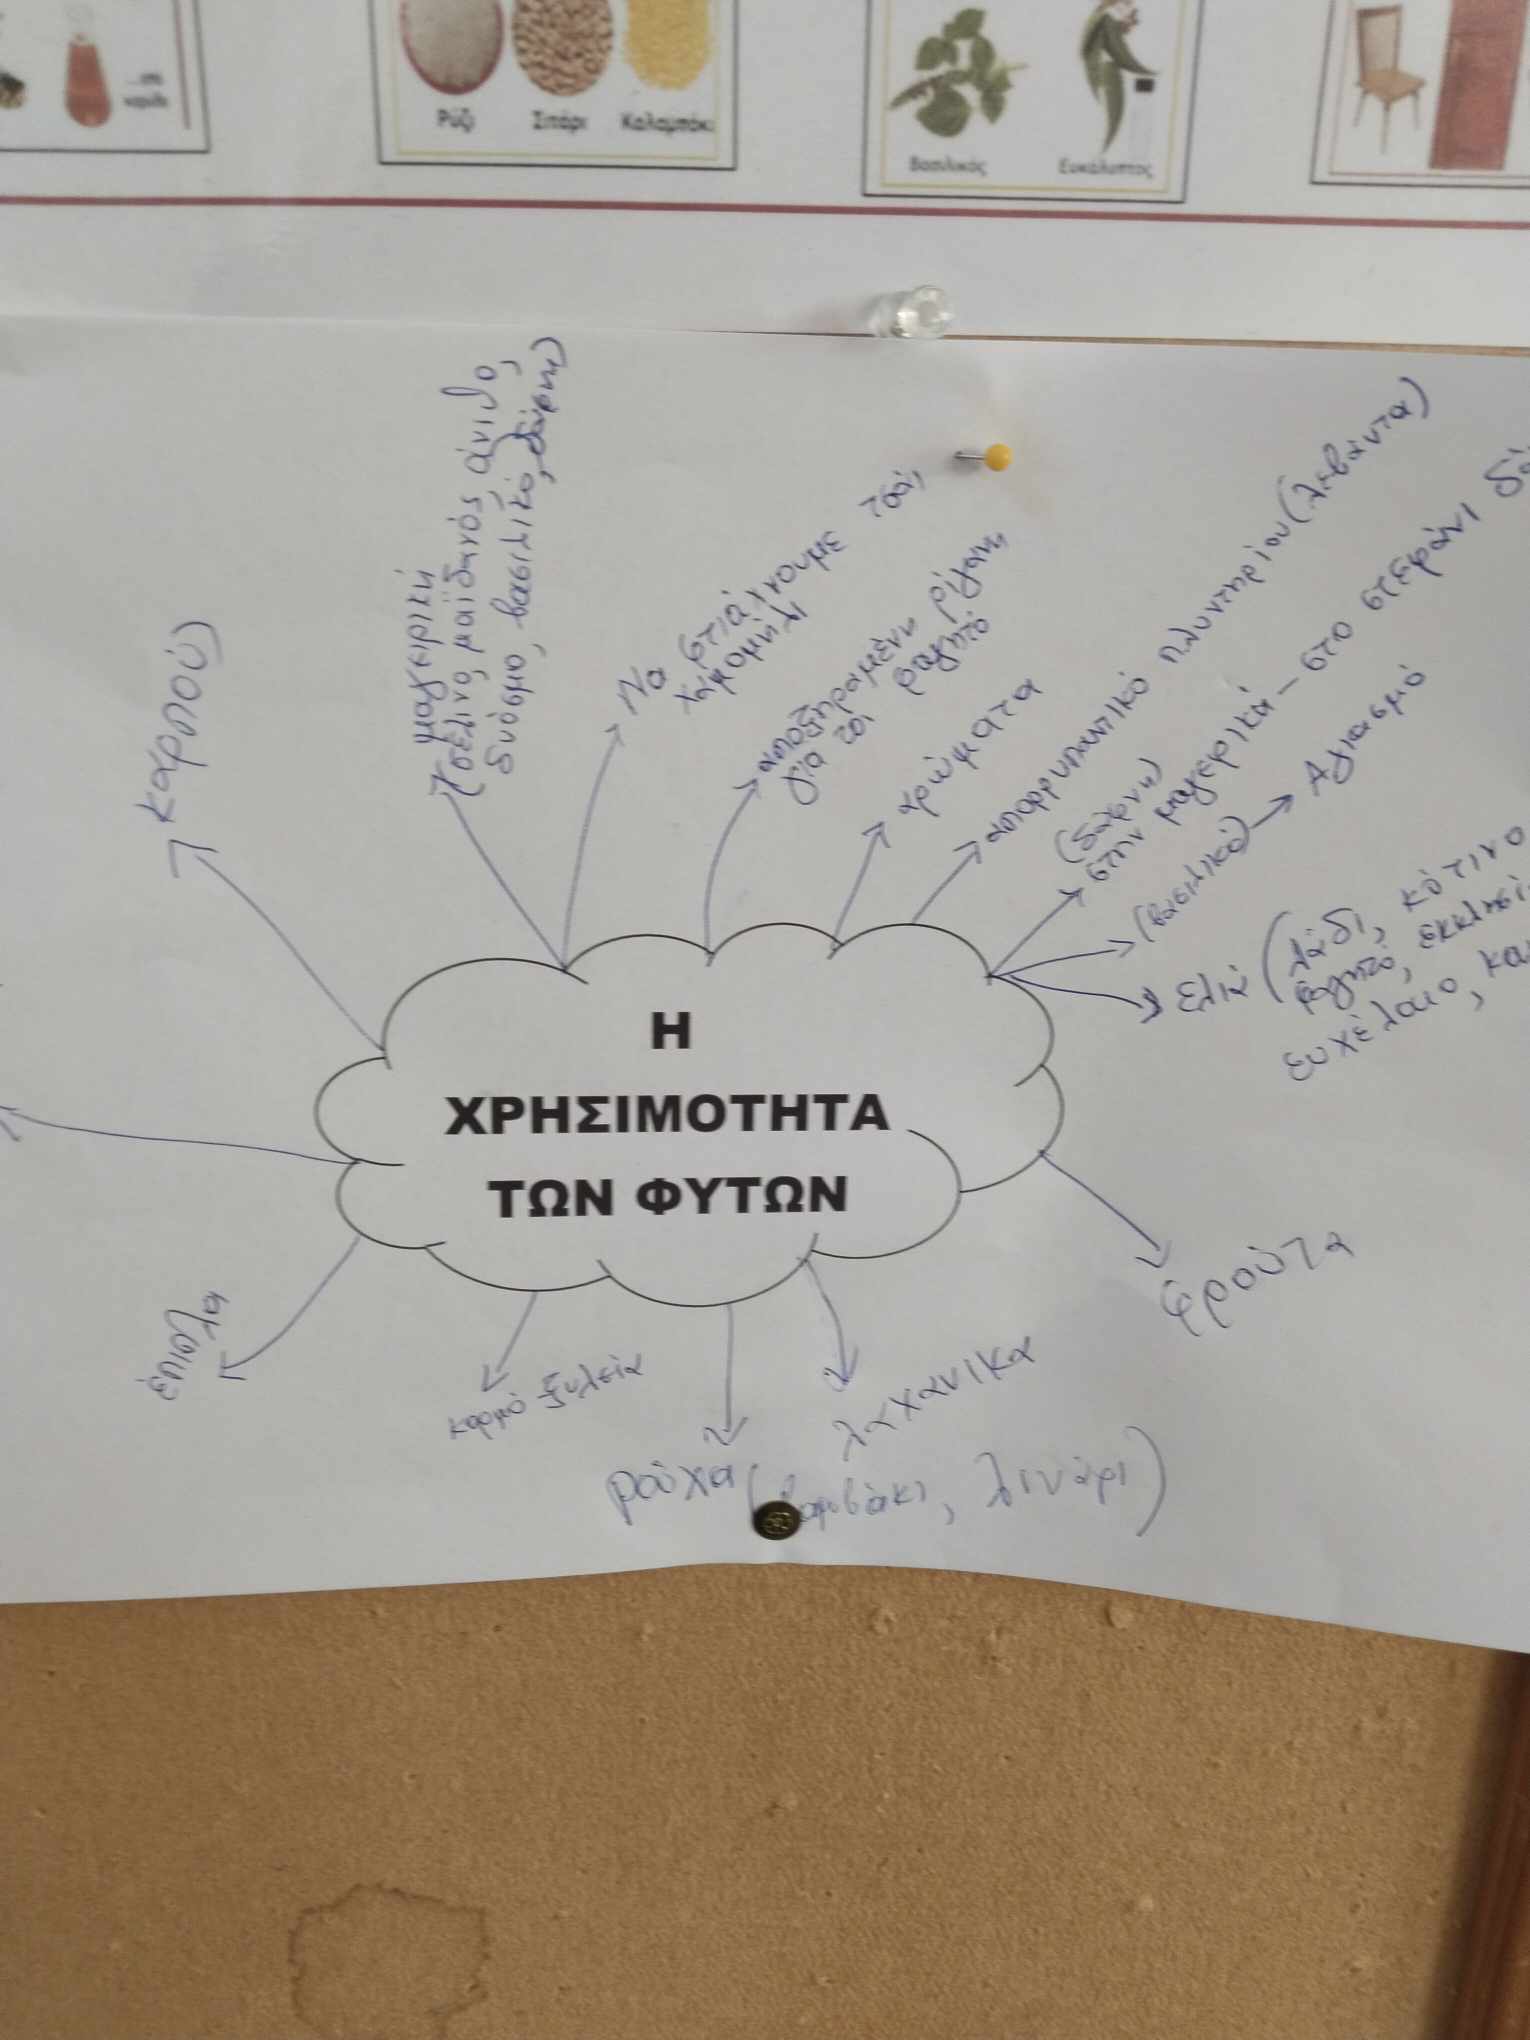 Ρύζι
Σιτάρι
Καλαμπόκι
Βασιλικός
Ευκάλυπτος
καρπούς
μαγειρική
(σέλινο, μαϊδανός, άνιθο,
δυόσμο, βασιλικό, δάφνη)
Να φτιάχνουμε τσάι,
χαμομήλι
αποξηραμένη ρίγανη
για το φαγητό
χρώματα
απορρυπαντικό πλυντηρίου (λεβάντα)
(δάφνη)
στην μαγειρική - στο στεφάνι
(βασιλικό) → Αγιασμό
ελιά (λάδι, κότινο
φαγητό, εκκλησί
ευχέλαιο,
Η
ΧΡΗΣΙΜΟΤΗΤΑ
ΤΩΝ ΦΥΤΩΝ
φρούτα
έπιπλα
κορμό ξυλεία
λαχανικα
ρούχα (βαμβάκι, λινάρι)